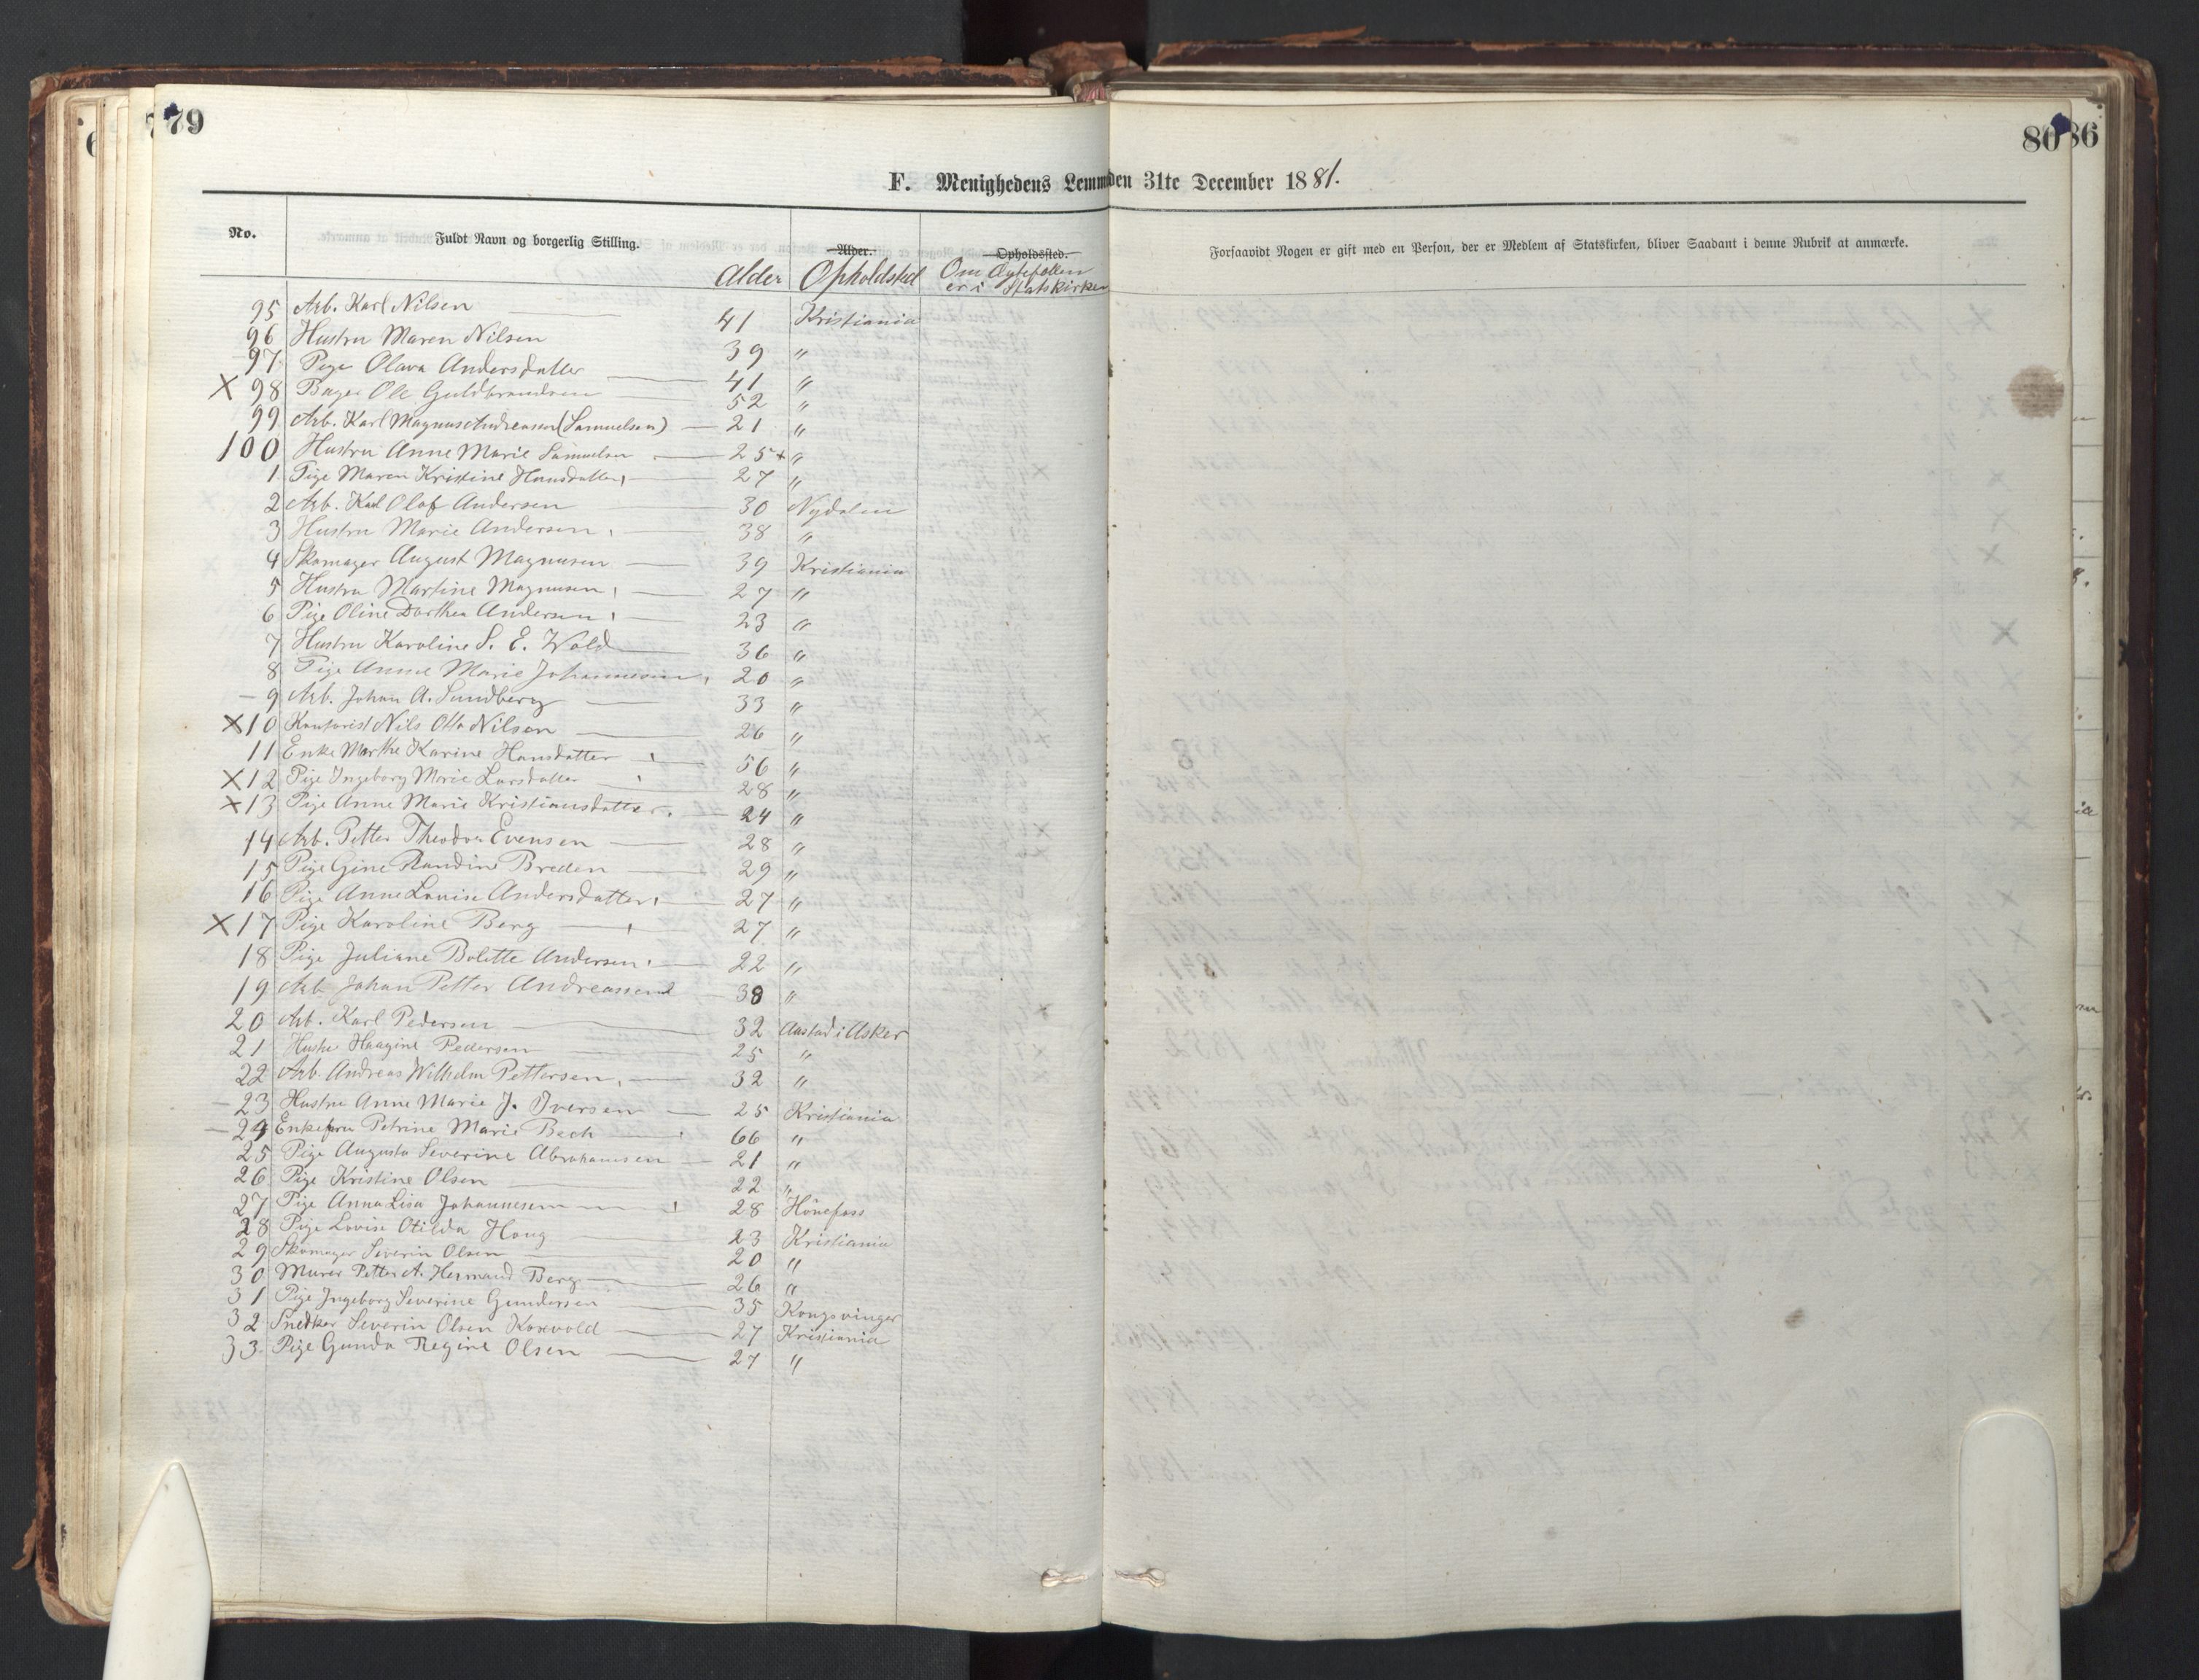 79
80
86
F. Menighedens Lemm den 31te December 1881.
No. Fuldt Navn og borgerlig Stilling. Alder. Opholdssted. Forsaavidt Nogen er gift med en Person, der er Medlem af Statskirken, bliver Saadant i denne Rubrik at anmærke.
Alder Opholdsted Om Ægtefællen
er i Statskirken
95 Arb. Karl Nilsen 41 Kristiania
96 Hustru Maren Nilsen 39 "
97 Pige Olava Andersdatter 41 "
X 98 Bager Ole Guldbrandsen 52 "
99 Arb. Karl Magnus Andreassen (Samuelsen) 21 "
100 Hustru Anne Marie Samuelsen 25 + "
1 Pige Maren Kristine Hansdatter 27 "
2 Arb. Karl Olof Andersen 30 Nydalen
3 Hustru Marie Andersen 38 "
4 Skomager August Magnusen 39 Kristiania
5 Hustru Martine Magnusen 27 "
6 Pige Oline Dorthea Andersen 23 "
7 Hustru Karoline S. E. Wold 36 "
8 Pige Anne Marie Johannesen 20 "
- 9 Arb. Johan A. Sundberg 33 "
X 10 Kontorist Nils Otto Nilsen 26 "
11 Enke Marthe Karine Hansdatter 56 "
X 12 Pige Ingeborg Marie Larsdatter 28 "
X 13 Pige Anne Marie Kristiansdatter 24 "
14 Arb. Petter Theodor Evensen 28 "
15 Pige Gine Randine Breden 29 "
16 Pige Anne Lovise Andersdatter 27 "
X 17 Pige Karoline Berg 27 "
18 Pige Juliane Bolette Andersen 22 "
19 Arb. Johan Petter Andreassen 38 "
20 Arb. Karl Pedersen 32 Aastad i Asker
21 Hustr Haagine Pedersen 25 "
22 Arb. Andreas Wilhelm Pettersen 32 "
- 23 Hustru Anne Marie J. Iversen 25 Kristiania
- 24 Enkefru Petrine Marie Bech 66 "
25 Pige Augusta Severine Abrahamsen 21 "
26 Pige Kristine Olsen 22 "
27 Pige Anna Lisa Johannesen 28 Hönefoss
28 Pige Lovise Otilda Houg 23 Kristiania
29 Skomager Severin Olsen 20 "
30 Murer Petter A. Hermand Berg 26 "
31 Pige Ingeborg Severine Gundersen 35 Kongsvinger
32 Snedker Severin Olsen Korvold 27 Kristiania
33 Pige Gunda Regine Olsen 27 "